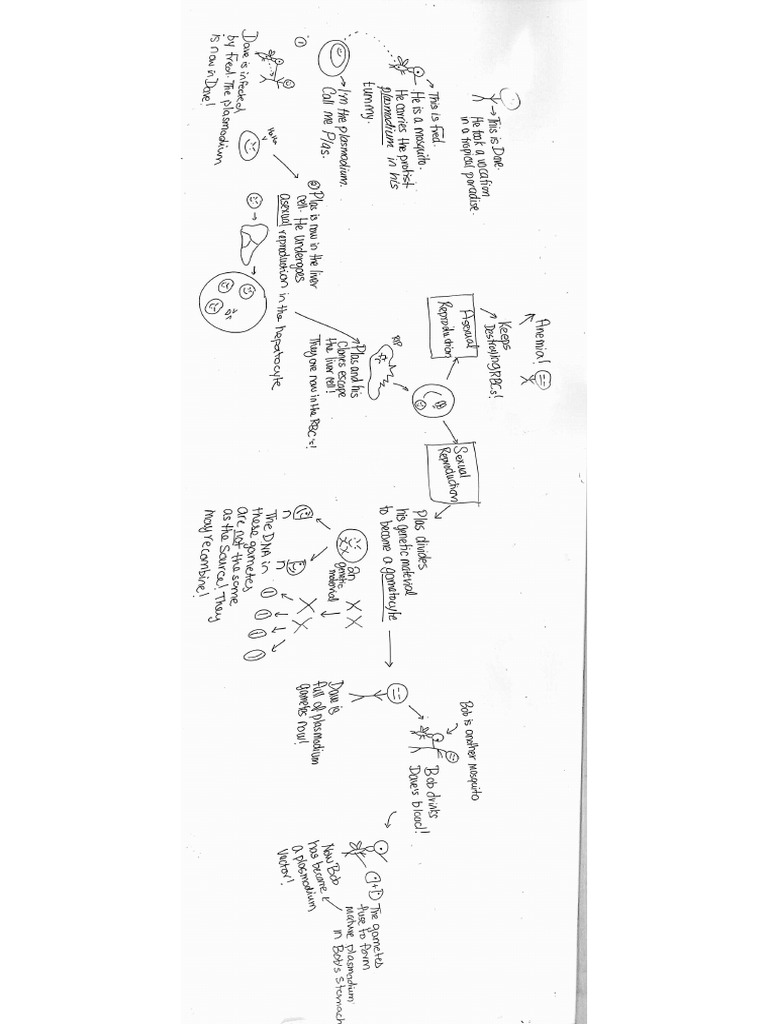 This is Dave.
He took a vacation
in a tropical paradise.
This is Fred.
He is a mosquito.
He carries the protist
plasmodium in his
tummy.
I'm the plasmodium.
Call me Plas.
①
Dave is infected
by Fred. The plasmodium
is now in Dave!
HaHa
② Plas is now in the liver
cell. He undergoes
asexual reproduction in the hepatocyte
RIP
Plas and his
clones escape
the liver cell!
They are now in the RBC's!
Asexual
Reproduction
Keeps
Destroying RBCs!
Anemia!
Sexual
Reproduction
Plas divides
his genetic material
to become a gametocyte
2n
genetic
material
n
n
The DNA in
these gametes
are not the same
as the source! They
may recombine!
Dave is
full of plasmodium
gametes now!
Bob is another mosquito
Bob drinks
Dave's blood!
The gametes
fuse to form
mature plasmodium
in Bob's stomach
Now Bob
has become
a plasmodium
vector!